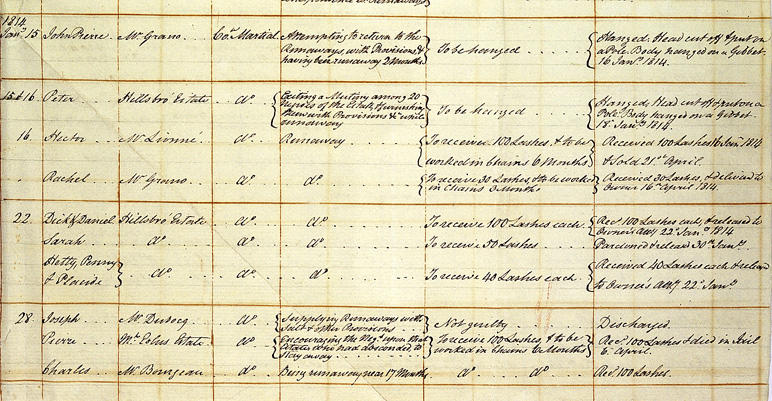 1814
Janʸ 15 John Pierre Mʳ Grano Coᵗ Martial Attempting to return to the Runaways, with Provisions & having been runaway 2 Months To be hanged Hanged. Head cut off & put on a Pole. Body hanged on a Gibbet 16 Janʸ 1814.
15 & 16 Peter Hillsbro' Estate dº Exciting a Mutiny among 20 Negroes of the Estate, & furnishing them with Provisions & while runaway To be hanged Hanged, Head cut off & put on a Pole. Body hanged on a Gibbet 18 Janʸ 1814.
16. Hector Mʳ Lionné dº Runaway To receive 100 Lashes & to be worked in Chains 6 Months Received 100 Lashes 18 Janʸ 1814 & Sold 21ˢᵗ April.
Rachel Mʳ Grano dº dº To receive 30 Lashes, & to be worked in Chains 3 Months Received 30 Lashes, & delivered to Owner 16 April 1814.
22 Dick & Daniel Hillsbro' Estate dº dº To receive 100 Lashes each Recᵈ 100 Lashes each, & released to Owner's Attʸ 22 Janʸ 1814
Sarah dº dº dº To receive 50 Lashes Pardoned & released 30 Janʸ.
Hetty, Penny & Placide dº dº dº To receive 40 Lashes each Received 40 Lashes each & releasd to Owner's Attʸ 22 Janʸ.
28 Joseph Mʳ Dubocq dº Supplying Runaways with Salt & other Provisions Not guilty Discharged.
Pierre Estate dº Encouraging the Negˢ upon that Estate who had absconded, to stay away To receive 100 Lashes, & to be worked in Chains Months Recᵈ 100 Lashes & died in Jail 6 April.
Charles Mʳ Bourgeau dº Being runaway near 17 Months dº dº Recᵈ 100 Lashes